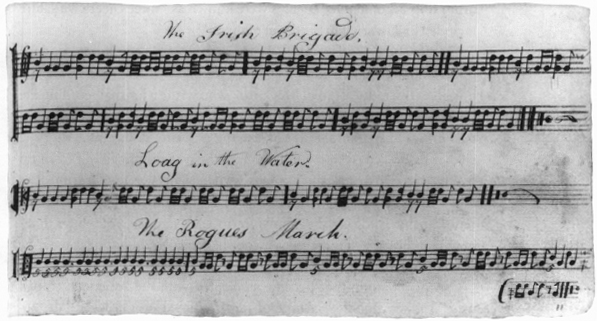 The Irish Brigade.
Loag in the Water.
The Rogues March.